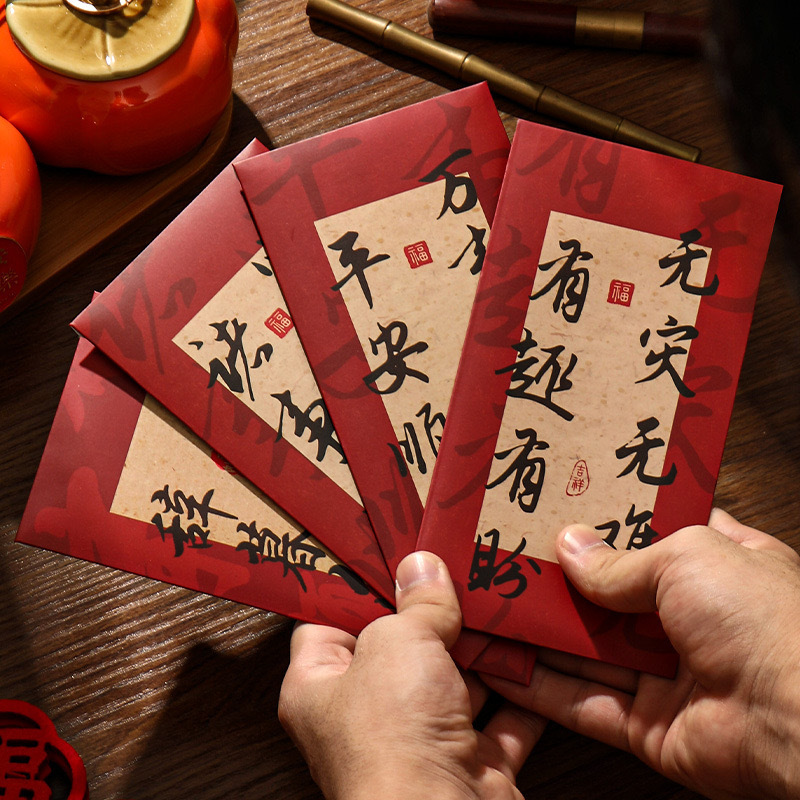 无灾无难
有趣有盼
福
吉祥
万
平安顺
福
福
辞暮